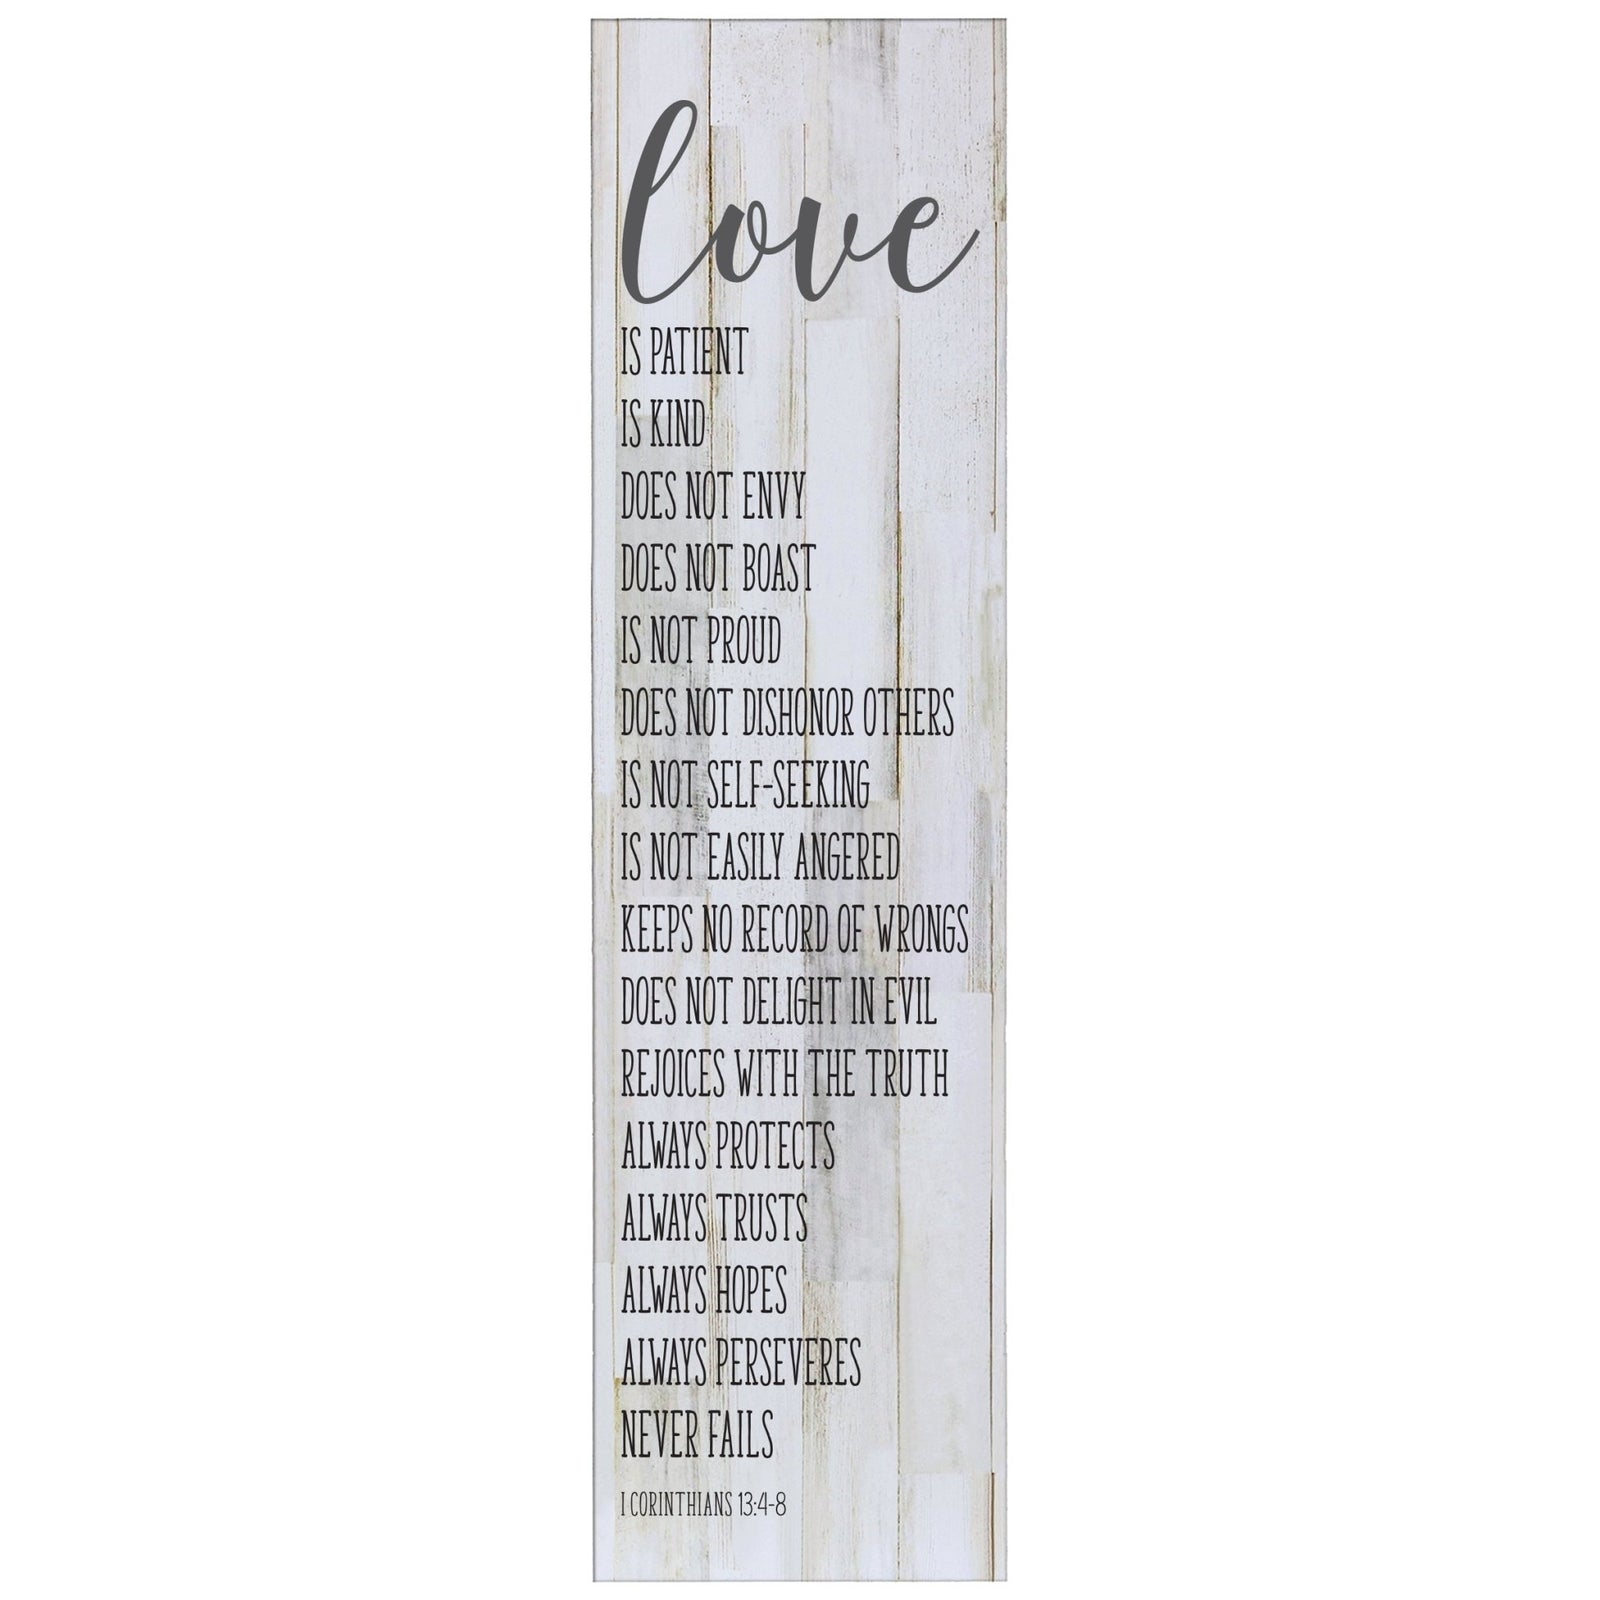 love
IS PATIENT
IS KIND
DOES NOT ENVY
DOES NOT BOAST
IS NOT PROUD
DOES NOT DISHONOR OTHERS
IS NOT SELF-SEEKING
IS NOT EASILY ANGERED
KEEPS NO RECORD OF WRONGS
DOES NOT DELIGHT IN EVIL
REJOICES WITH THE TRUTH
ALWAYS PROTECTS
ALWAYS TRUSTS
ALWAYS HOPES
ALWAYS PERSEVERES
NEVER FAILS
1 CORINTHIANS 13:4-8